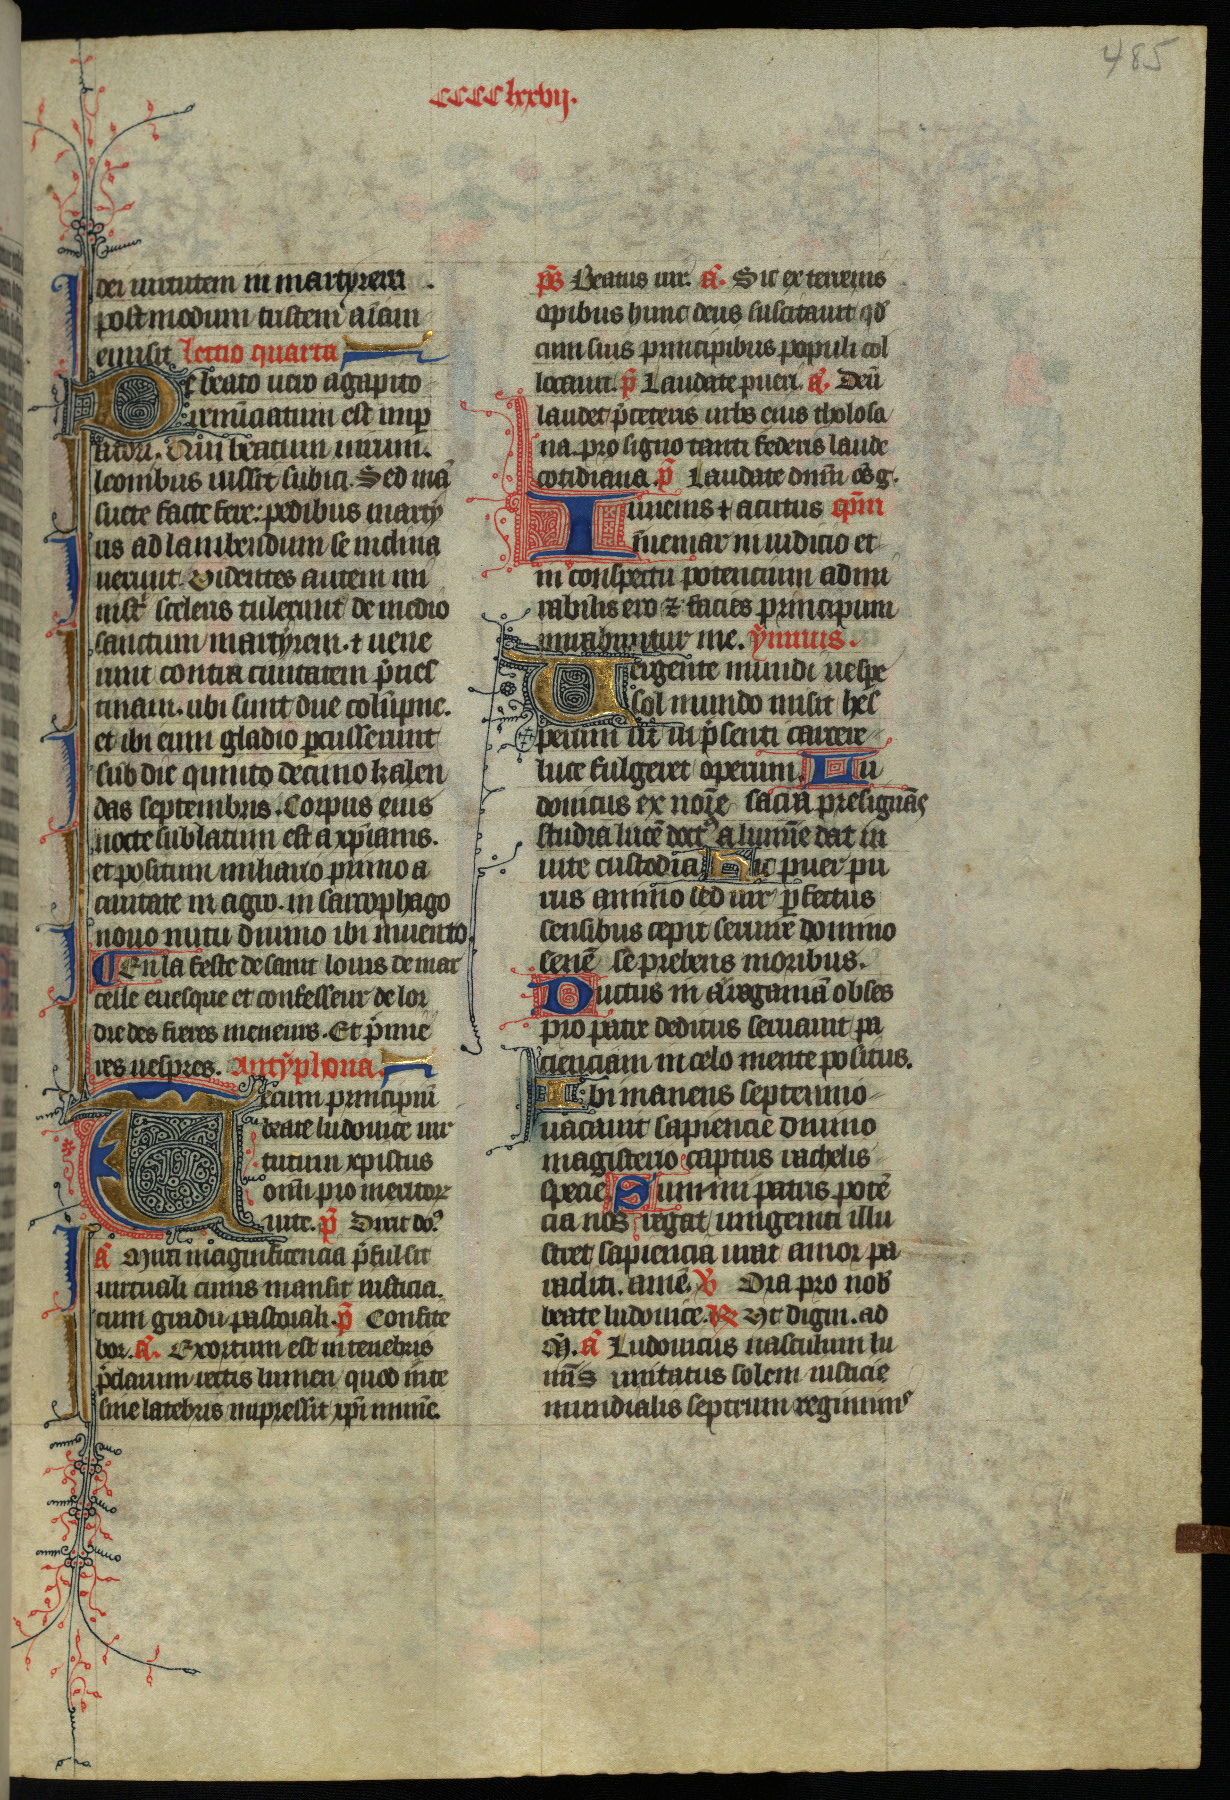 485
CCCClxxvij.
dei uirtutem in martyrem
postmodum tristem aīam
emisit lectio quarta
De beato uero agapito
renūciatum est imp̄
atori. Qui beatum uirum.
leonibus iussit subici. Sed mā
suete facte fere: pedibus marty
ris ad lambendum se inclina
uerunt. Videntes autem mi
nistͥ sceleris tulerunt de medio
sanctum martyrem. ⁊ uene
runt contra ciuitatem p̄nes
tinam. ubi sunt due colūpne.
et ibi eum gladio ꝑcusserunt
sub die quinto decimo kalen
das septembris. Corpus eius
nocte sublatum est a xp̄ianis.
et positum miliario primo a
ciuitate in agro. in sarcophago
nouo nutu diuino ibi inuento
En la feste de saint louis de mar
celle euesque et confesseur de lor
dre des freres meneurs. Et p̄mie
res uespres. Antyphona.
Tecum principiū
beate ludouice uir
tutum xpistus
om̄i pro meritor
uite. p̄. Dixit do.
a᷑ Mira magnificencia p̄fulsit
uirtuali cuius mansit iusticia.
cum gradu pastorali. p̄ Confite
bor. a᷑. Exortum est in tenebris
p̄clarum rectis lumen quod mīte
sine latebris impressit xp̄i numē.
p̄s Beatus uir. a᷑. Sic ex terrenis
opibus hunc deus suscitauit qd̄
cum suis principibus populi col
locauit. p̄ Laudate pueri. a᷑. Deū
laudet p̄ceteris urbs eius tholosa
na. pro signo tanti federis laude
cotidiana. p̄ Laudate dn̄m om̄s g.
Iuuenis ⁊ acutus cp̄m
īueniar in iudicio et
in conspectu potencium admi
rabilis ero ⁊ facies principum
mirabuntur me. ymnus.
Uergente mundi uespe
sol mundo misit hes
perum ut in p̄senti carcere
luce fulgeret operum. Lu
douicus ex noīe sacra presignās
studia lucē doctꝰ a lumīe dat in
uite custodia Hic puer pu
rus animo sed uir ꝑfectus
sensibus cepit seruire domino
senē se prebens moribus.
Ductus in aragoniā obses
pro patre deditus seruauit pa
cienciam in celo mente positus.
Ibi manens septennio
uacauit sapiencie diuino
magisterio captus rachelis
specie. Summi patris potē
cia nos regat unigeniti illu
stret sapiencia iuuat amor pa
racliti. amē. V̸ Ora pro nob̄
beate ludouice. R̸ Vt digni. ad
M̄. a᷑ Ludouicus uasculum lu
mīs imitatus solem iusticie
mundialis septrum regiminis